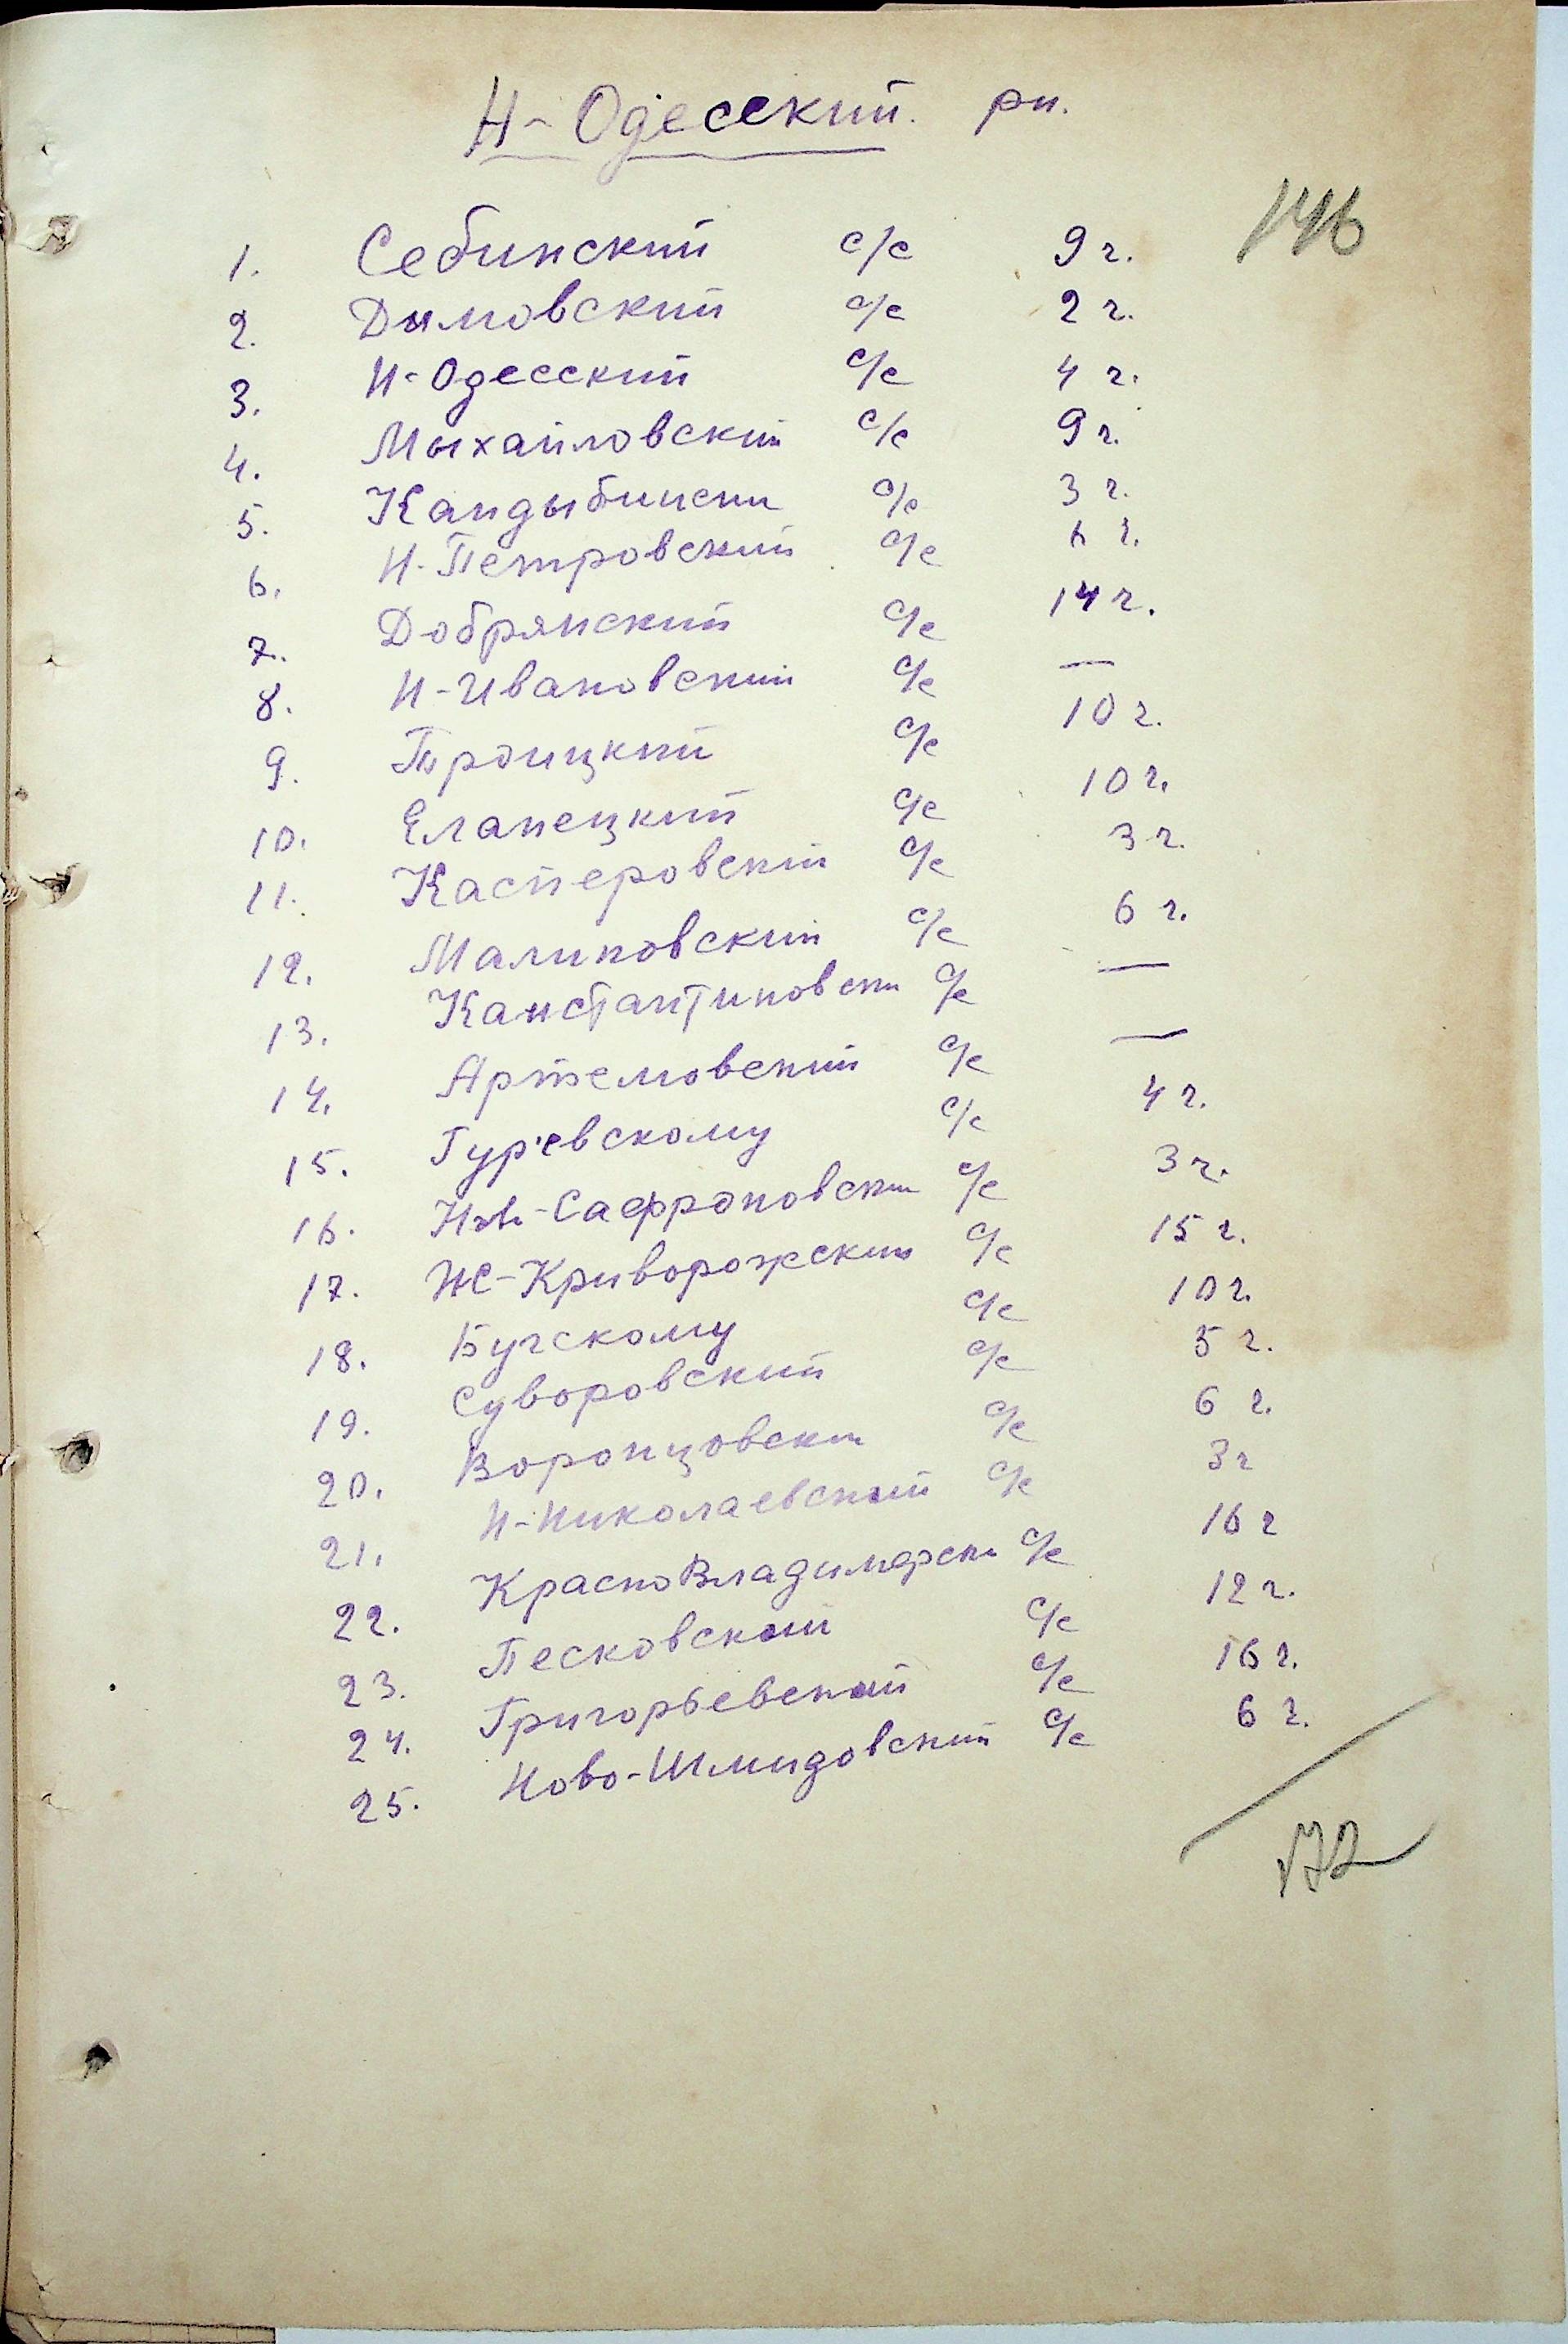 Н-Одесский рн.
146
1. Себинский с/с 9 г.
2. Дымовский с/с 2 г.
3. Н-Одесский с/с 4 г.
4. Мыхайловский с/с 9 г.
5. Кандыбински с/с 3 г.
6. Н-Петровский с/с 6 г.
7. Добрянский с/с 14 г.
8. Н-Ивановский с/с —
9. Троицкий с/с 10 г.
10. Еланецкий с/с 10 г.
11. Касперовский с/с 3 г.
12. Малиновский с/с 6 г.
13. Канстантиновски с/с —
14. Артемовский с/с —
15. Гур'евскому с/с 4 г.
16. Нов-Сафроновски с/с 3 г.
17. -Криворожский с/с 15 г.
18. Бугскому с/с 10 г.
19. Суворовский с/с 5 г.
20. Воронцовски с/с 6 г.
21. Н-Николаевский с/с 3 г
22. КрасноВладимирски с/с 16 г
23. Песковский с/с 12 г.
24. Григорьевский с/с 16 г.
25. Ново-Шмидовский с/с 6 г.
172